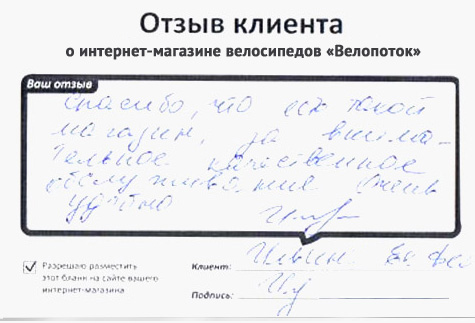 Отзыв клиента
о интернет-магазине велосипедов «Велопоток»
Ваш отзыв
Спасибо, что есть такой
магазин, за внима-
тельное качественное
обслуживание Очень
удобно
Разрешаю разместить
этот бланк на сайте вашего
интернет-магазина
Клиент:
Подпись: